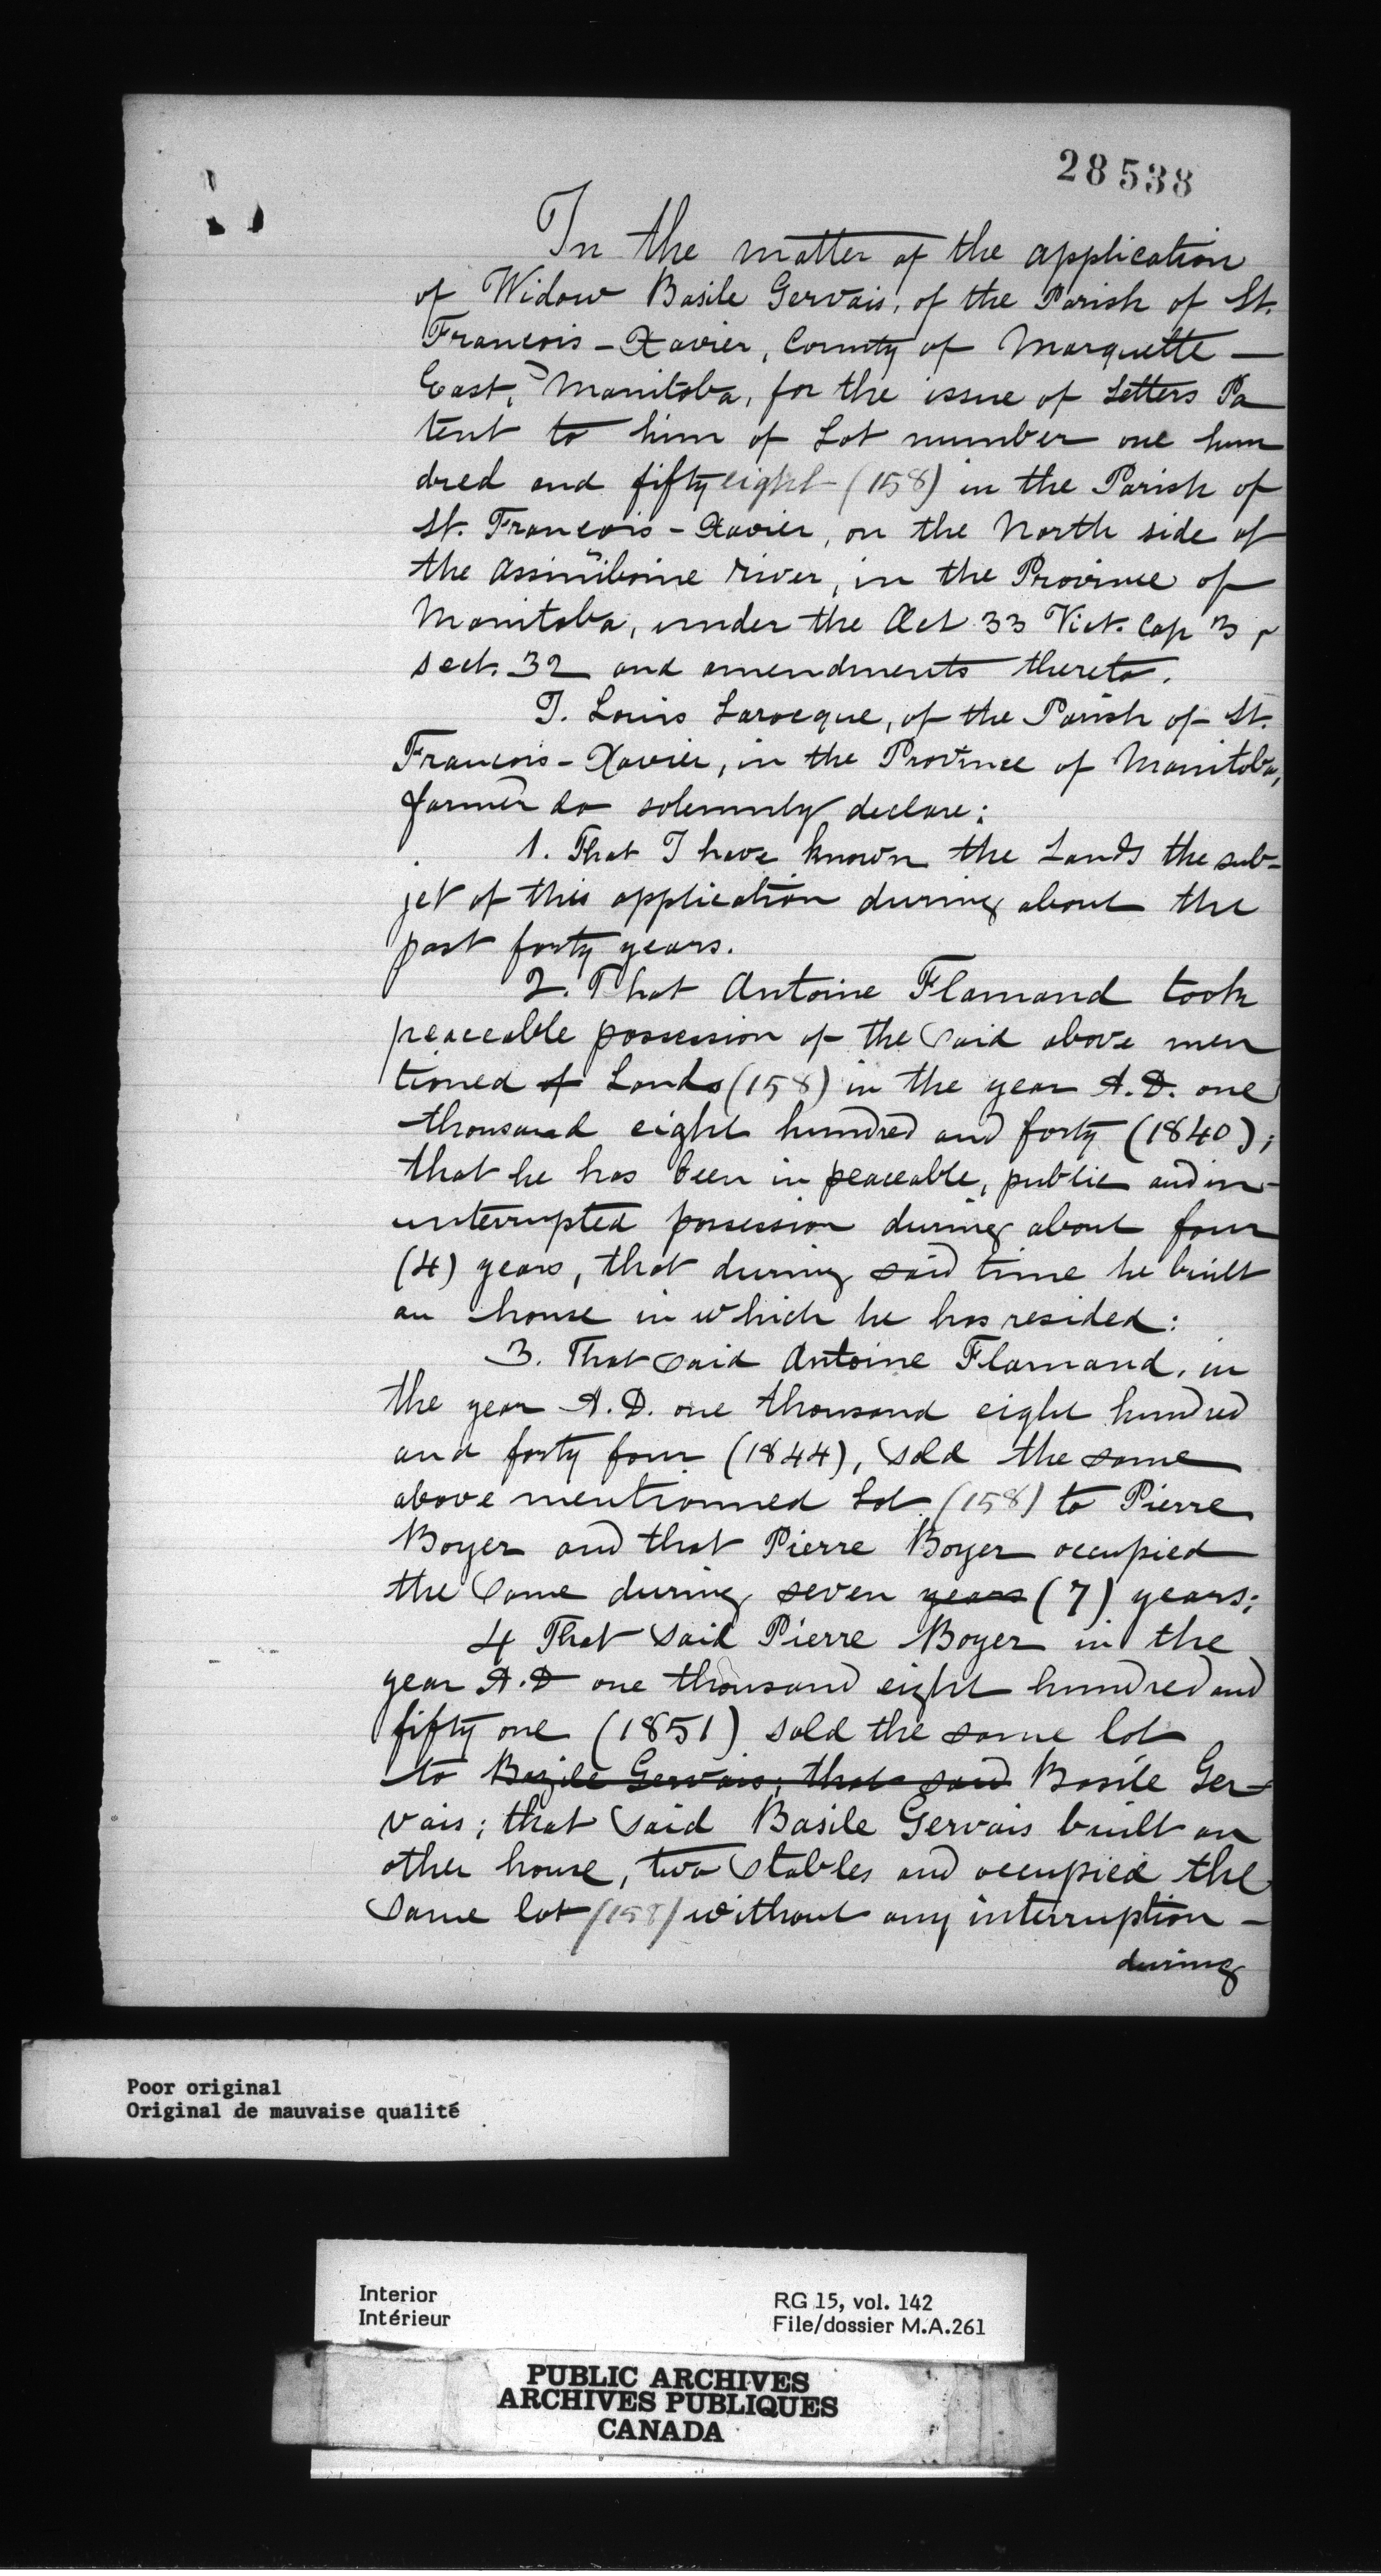 28538
In the matter of the application
of Widow Basile Gervais, of the Parish of St.
Francois-Xavier, County of Marquette -
East, Manitoba, for the issue of Letters Pa
tent to him of Lot number one hun
dred and fifty eight (158) in the Parish of
St. François-Xavier, on the North side of
the Assiniboine river, in the Province of
Manitoba, under the Act 33 Vict. Cap 3,
sect. 32 and amendments thereto.
I. Louis Larocque, of the Parish of St.
Francois-Xavier, in the Province of Manitoba,
farmer do solemnly declare:
1. That I have known the Lands the sub-
jet of this application during about the
past forty years.
2. That Antoine Flamand took
peaceable possession of the said above men
tioned of Lands (158) in the year A.D. one
thousand eight hundred and forty (1840);
that he has been in peaceable, public and in-
unterrupted possession during about four
(4) years, that during said time he built
an house in which he has resided:
3. That said Antoine Flamand, in
the year A.D. one thousand eight hundred
and forty four (1844), sold the same
above mentionned Lot (158) to Pierre
Boyer and that Pierre Boyer occupied
the same during seven years (7) years;
4 That said Pierre Boyer in the
year A.D one thousand eight hundred and
fifty one (1851) sold the same lot
to Bazile Gervais; that said Basile Ger-
vais; that said Basile Gervais built an
other house, two stables and occupied the
same lot (158) without any interruption -
during
Poor original
Original de mauvaise qualité
Interior
Intérieur
RG 15, vol. 142
File/dossier M.A.261
PUBLIC ARCHIVES
ARCHIVES PUBLIQUES
CANADA